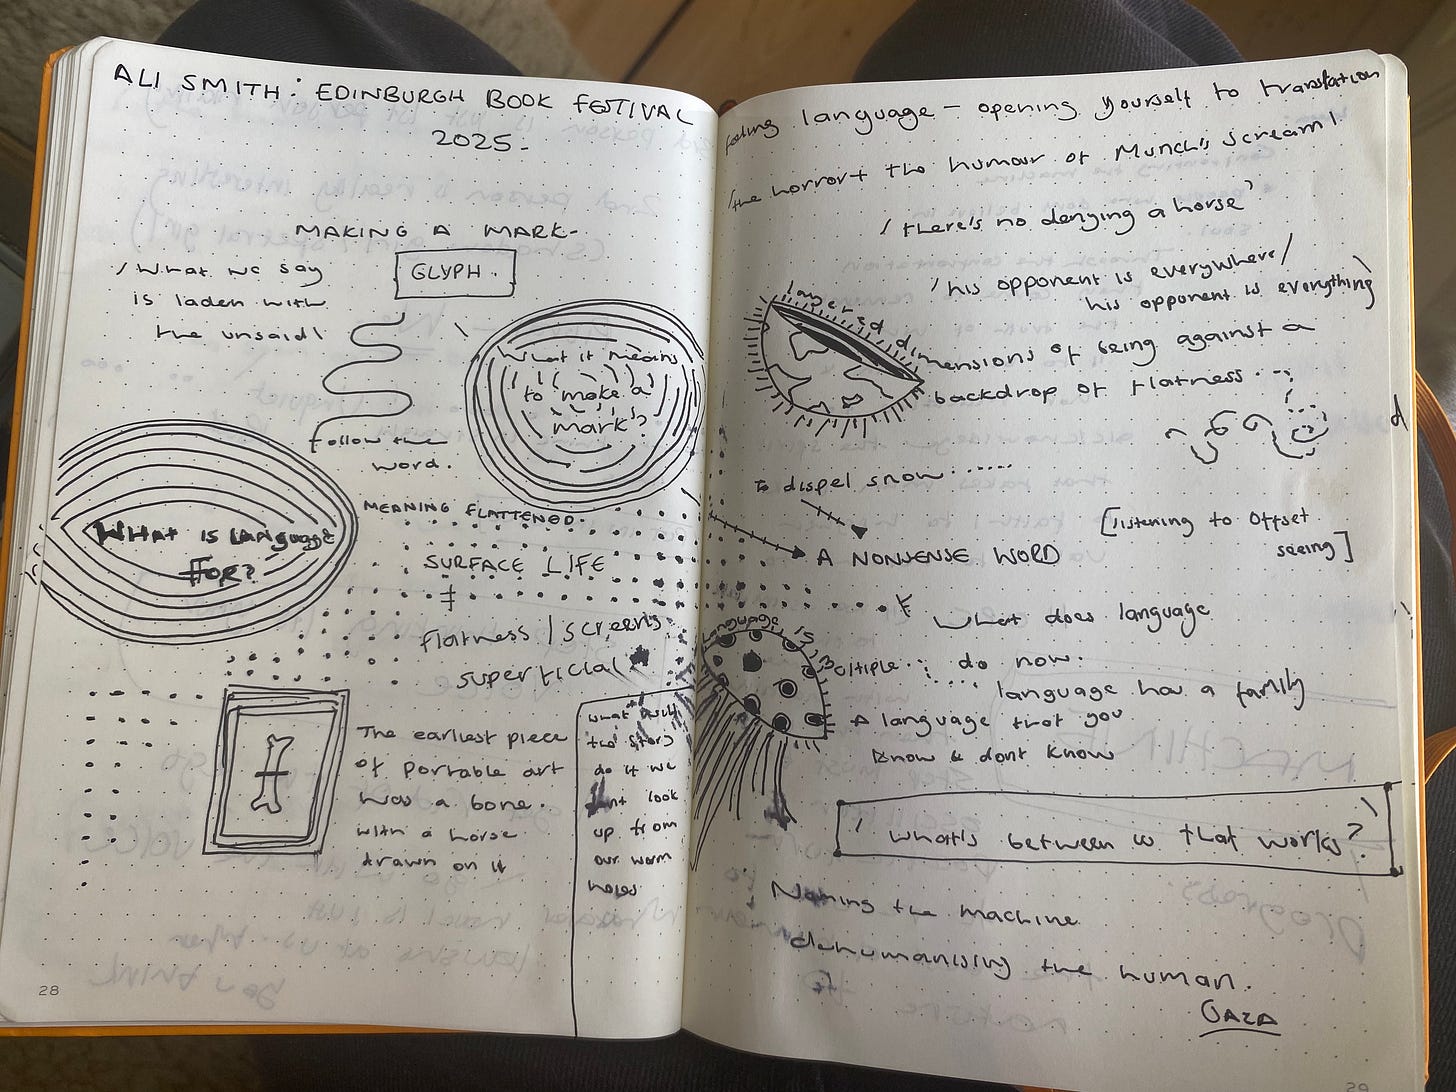 ALI SMITH: EDINBURGH BOOK FESTIVAL
2025.
MAKING A MARK-
GLYPH.
/ What we say
is laden with
the unsaid \
follow the
word.
What it means
to make a
mark?
WHAT IS LANGUAGE
FOR?
MEANING FLATTENED.
SURFACE LIFE
flatness / screens
superficial
The earliest piece
of portable art
was a bone.
with a horse
drawn on it
the story
do if we
look
up from
our worm
holes
28
language — opening yourself to translation
/ the horror + the humour of Munch's scream \
/ there's no denying a horse'
'his opponent is everywhere/
his opponent is everything)
layered dimensions of being against a
backdrop of flatness...
To dispel snow......
[listening to offset
seeing]
A NONSENSE WORD
What does language
do now.
language is multiple..
language has a family
A language that you
know & dont know
' what's between us that works? '
Naming the machine
dehumanising the human.
GAZA
29